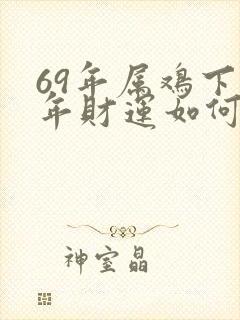 69年属鸡下
年财运如何
神室晶